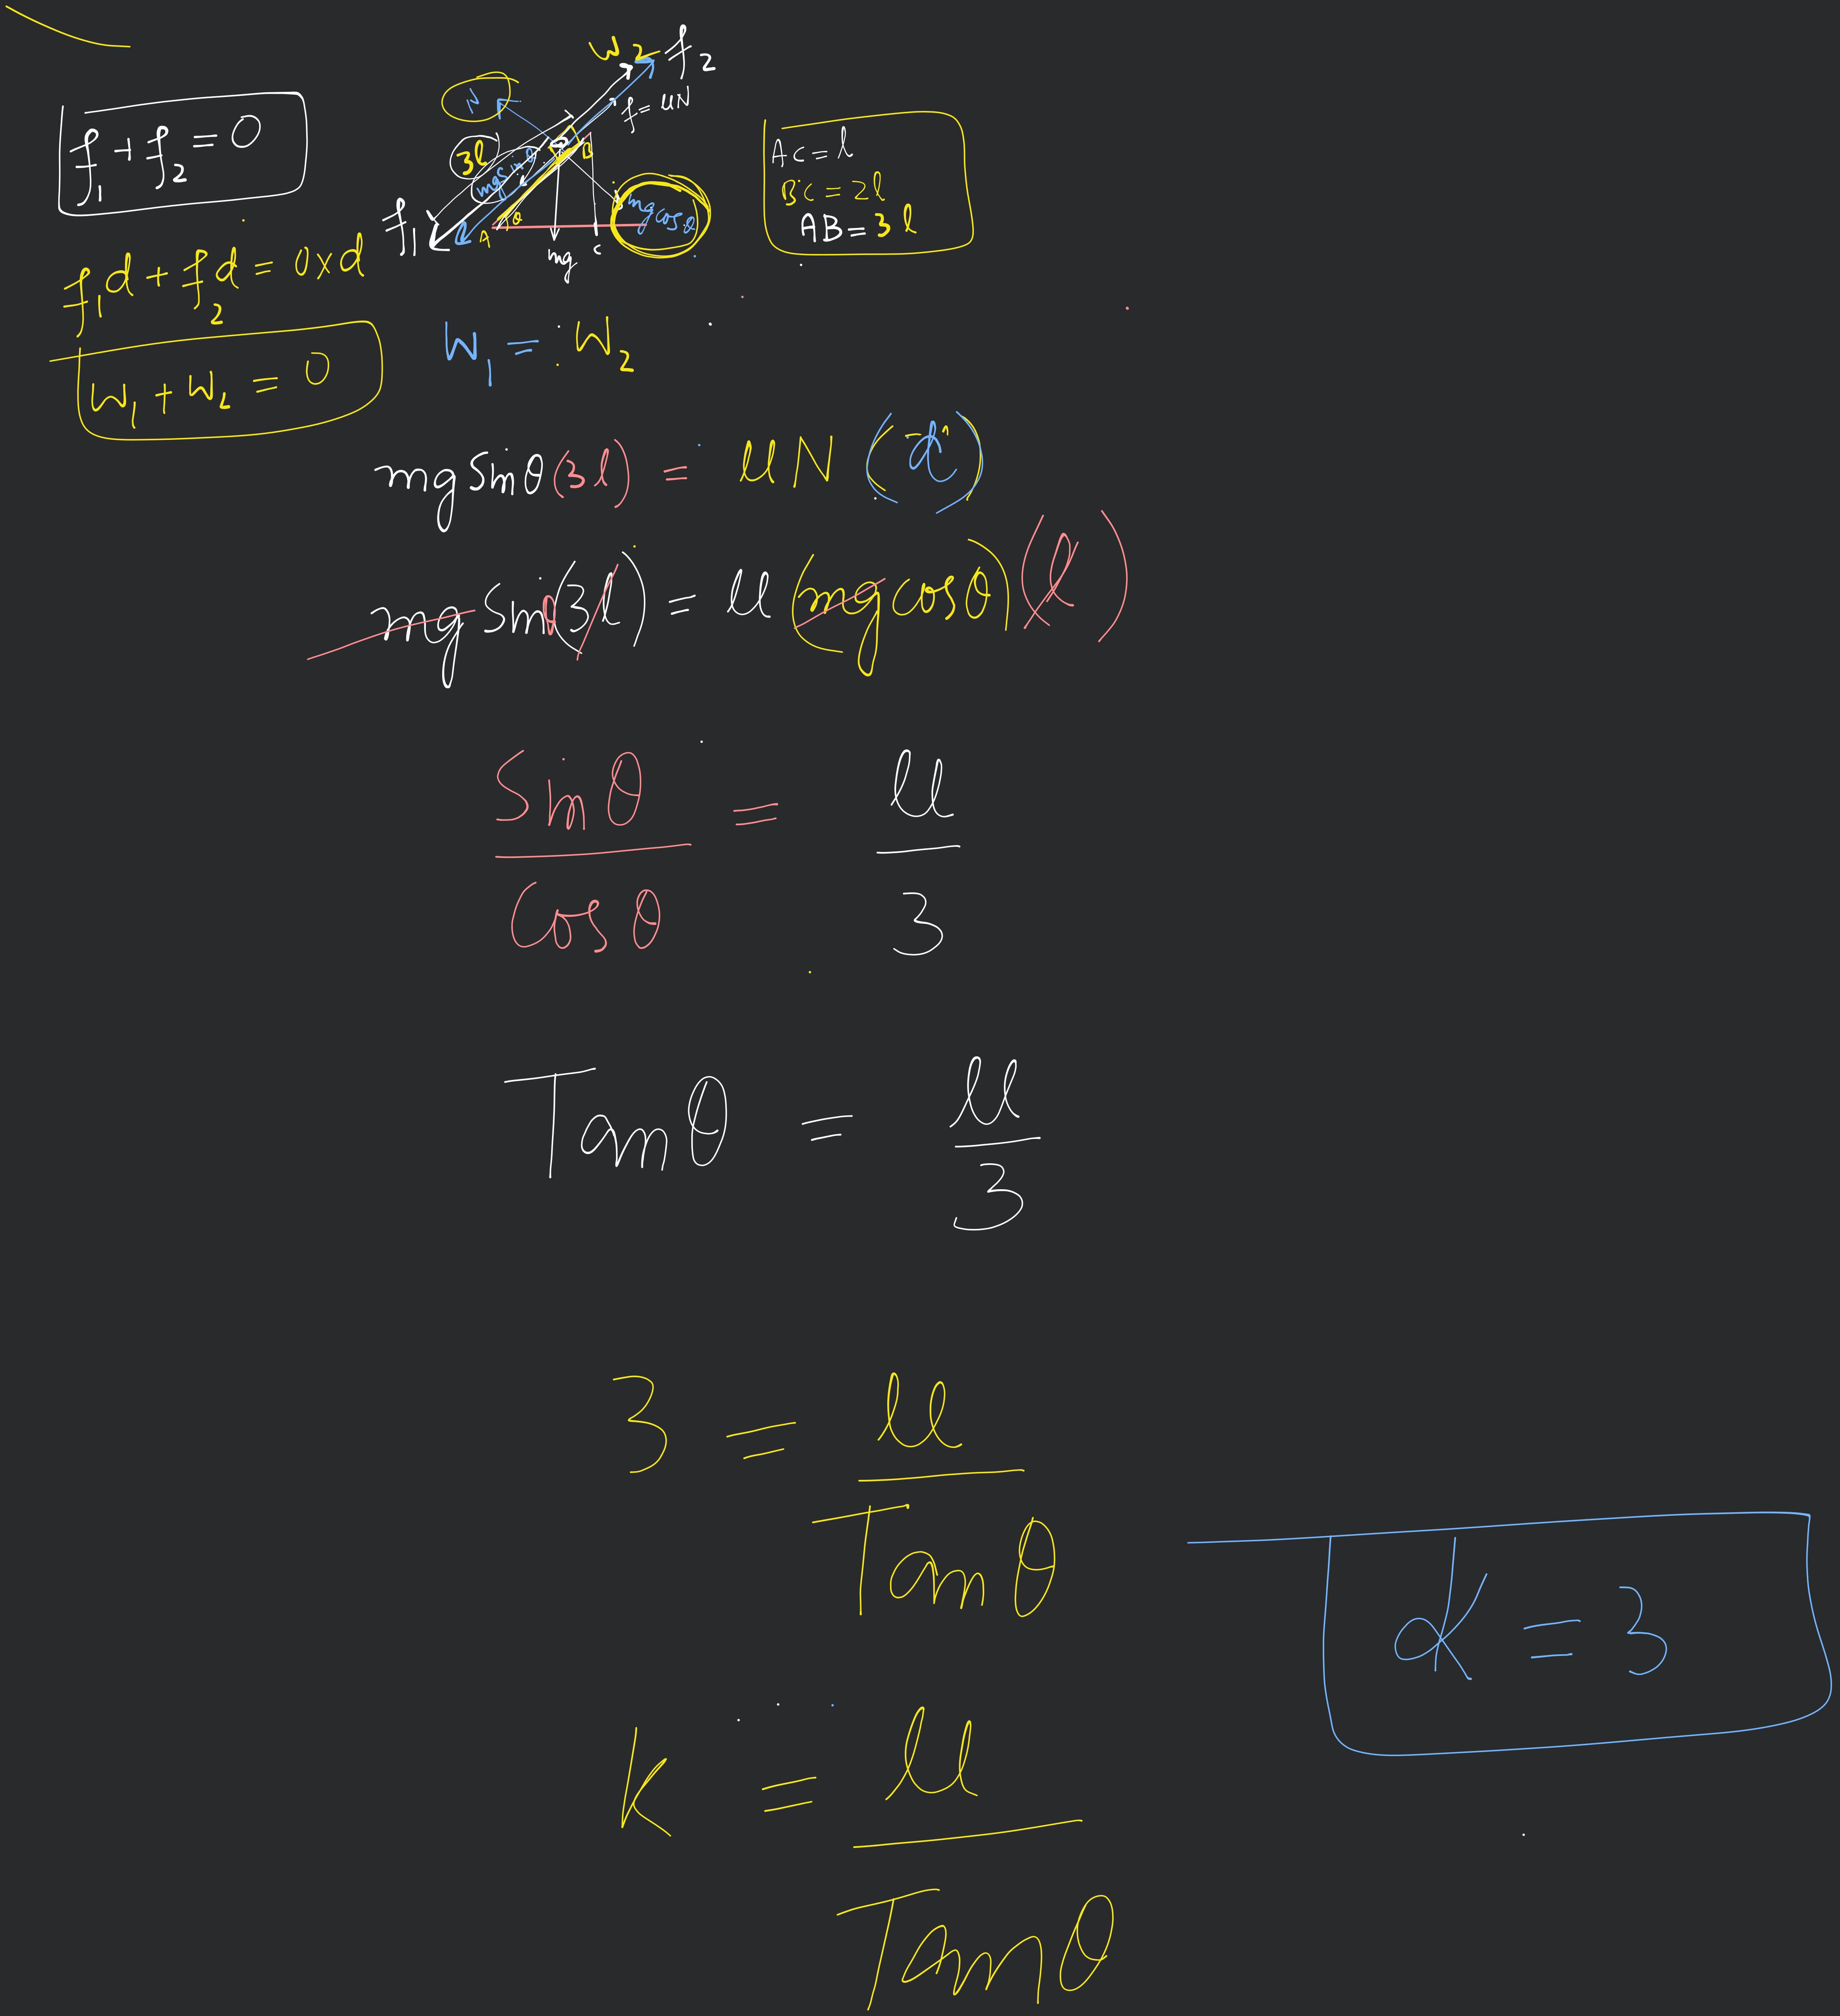 f₁ + f₂ = 0
f₁d + f₂d = 0 × d
W₁ + W₂ = 0
W₂
f₂
f = μN
N
3l
mg sinθ
B
θ
A
f₁
mg
c
mg cosθ
AC = l
BC = 2l
AB = 3l
W₁ = W₂
mg sinθ (3l) = μN (l)
mg sinθ (3l) = μ (mg cosθ) (l)
Sinθ / Cosθ = μ / 3
Tanθ = μ / 3
3 = μ / Tanθ
K = μ / Tanθ
K = 3